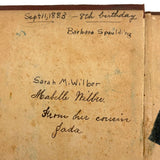 Sept 11, 1883 - 8th birthday
Barbara Spaulding
Sarah M. Wilber
Mabelle Wilber
From her cousin
Jada.